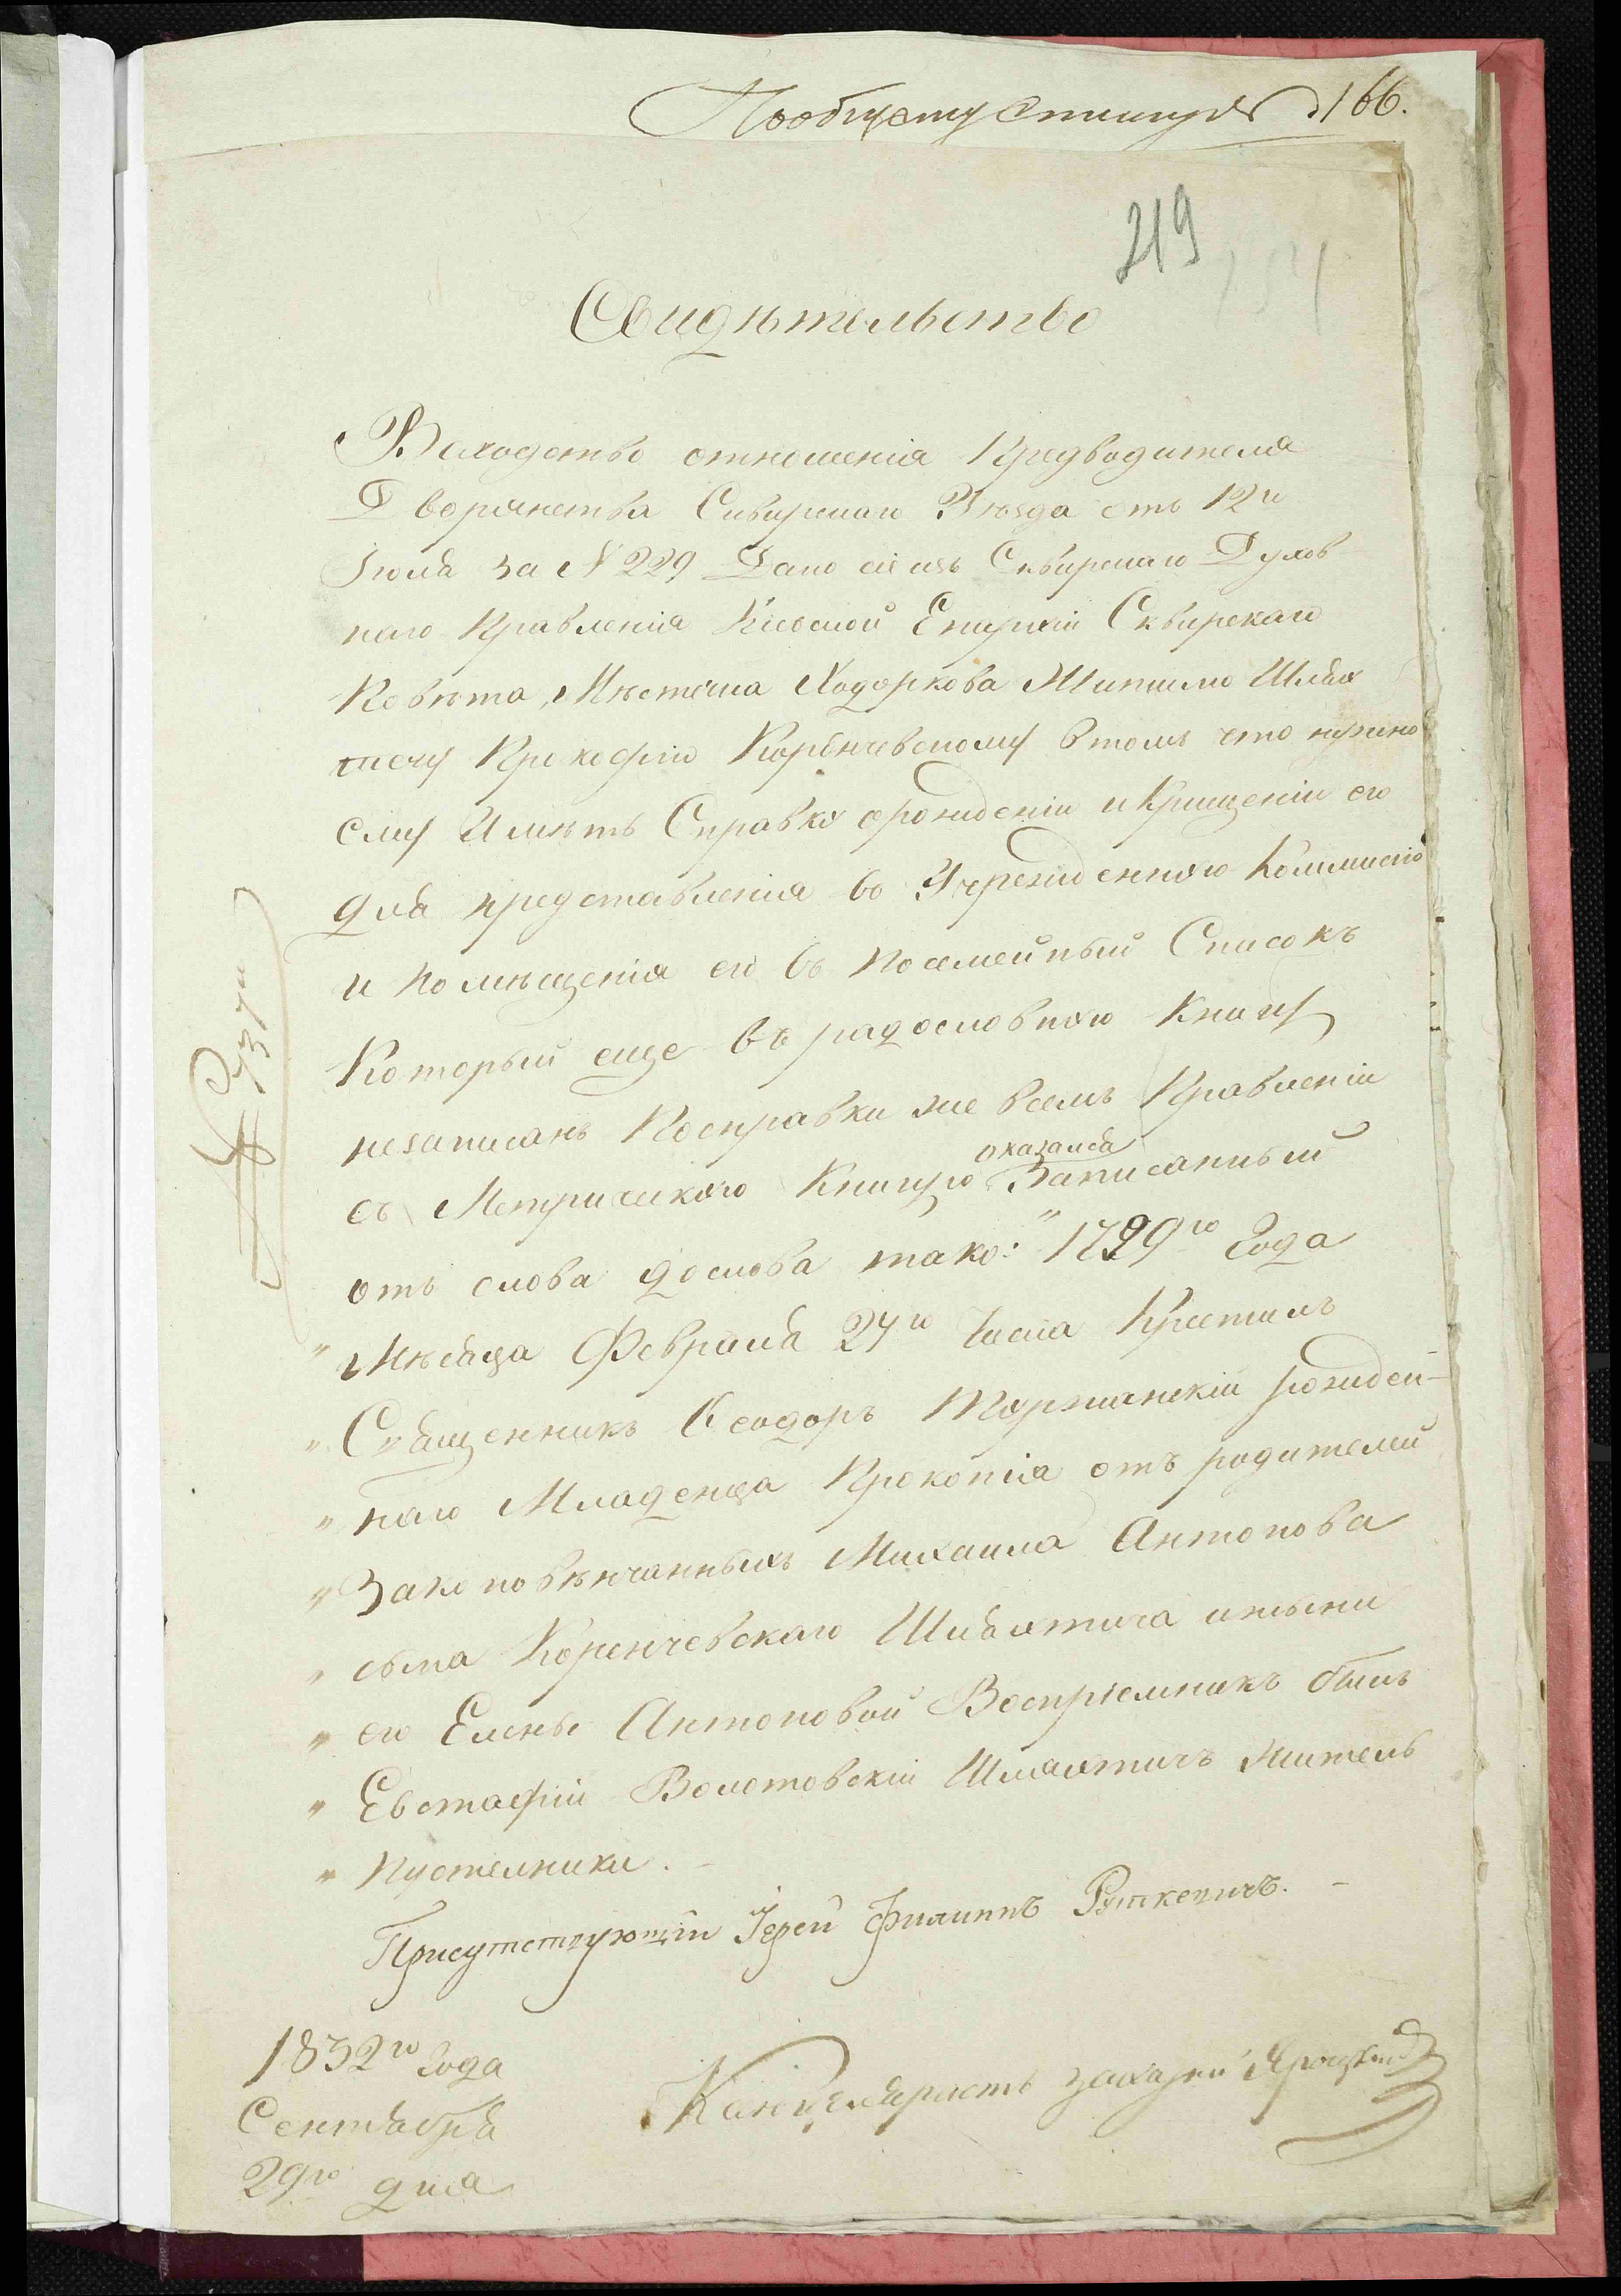 Пообщему списку № 166.
219
Свидѣтельство
Въсходство отношенія Предводителя
Дворянства Сквирскаго Уѣзда отъ 12го
Іюля за № 229 Дано сіе изъ Сквирскаго Духов
наго Правленія Кіевской Епархіи Сквирскаго
Повѣта, Мѣстечка Ходоркова Жителю Шлях
тичу Прокофію Коренчевскому втомъ что нужно
ему Имѣть Справку орожденіи икрещеніи его
для представленія во Учрежденную Коммисію
и Помѣщенія его въ посемейный Списокъ
Который еще въ радословную Книгу
незаписанъ Посправки же всемъ Правленіи
съ Метрическою Книгую оказался Записанный
отъ слова дослова тако: " 1799го Года
" Мѣсяца Февраля 24го Числа Крестилъ
" Священникъ Ѳеодоръ Торжанскій рожден-
" наго Младенца Прокопія отъ родителей
" Законовѣнчанныхъ Михаила Антонова
" сына Коренчевскаго Шляхтича ижены
" его Елены Антоновой Воспріемникъ былъ
" Евстафій Волотовскій Шляхтичъ житель
" Пустельники. -
Присутствующій Іерей Филиппъ Руткевичъ. -
1832го Года
Сентября
29го дня
Канцеляристъ Яроцкій
№ 737й